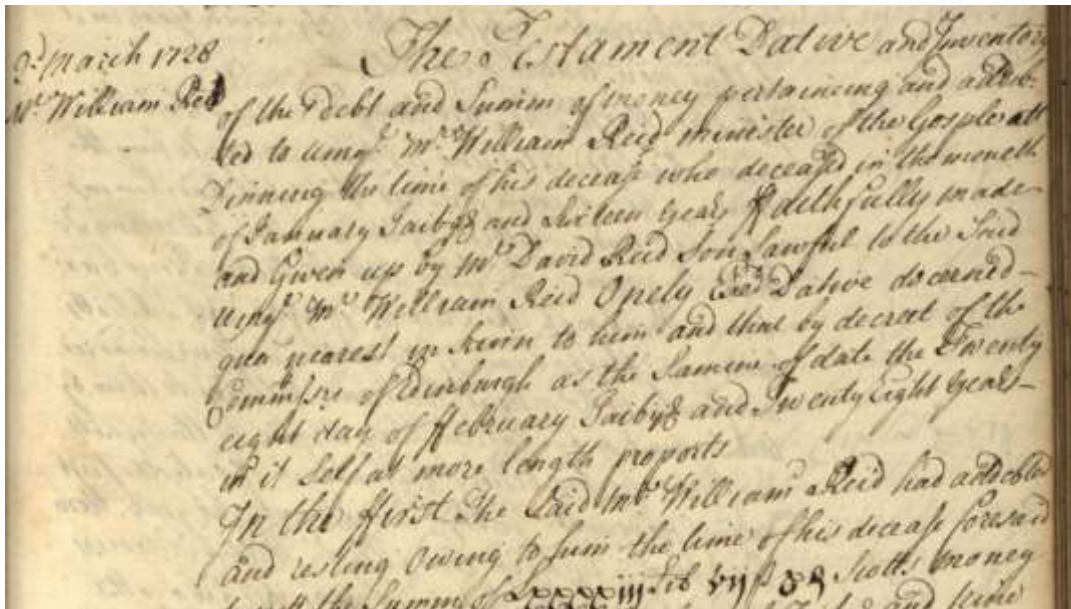 2d March 1728
Mr. William Reid
The Testament Dative and Inventory
of the debt and Summ of money pertaineing and addeb-
ted to umqll Mr. William Reid minister of the Gosple att
Dinning the time of his decease who deceased in the moneth
of January Jaibyȝ and Sixteen years ffaithfully made
and Given up by Mr. David Reid Son Lawful to the Said
umqll Mr. William Reid Onely Exer Dative decerned
qua nearest in kinn to him and that by decreet of the
Commissrs of Edinburgh as the Samine of date the Twenty
eight day of ffebruary Jaibyȝ and Twenty Eight years
in it Self at more length proports
In the ffirst The Said Mr. William Reid had addebted
and resting Owing to him the time of his decease foresaid
the Summ of Lib vij ß Scotts money
and